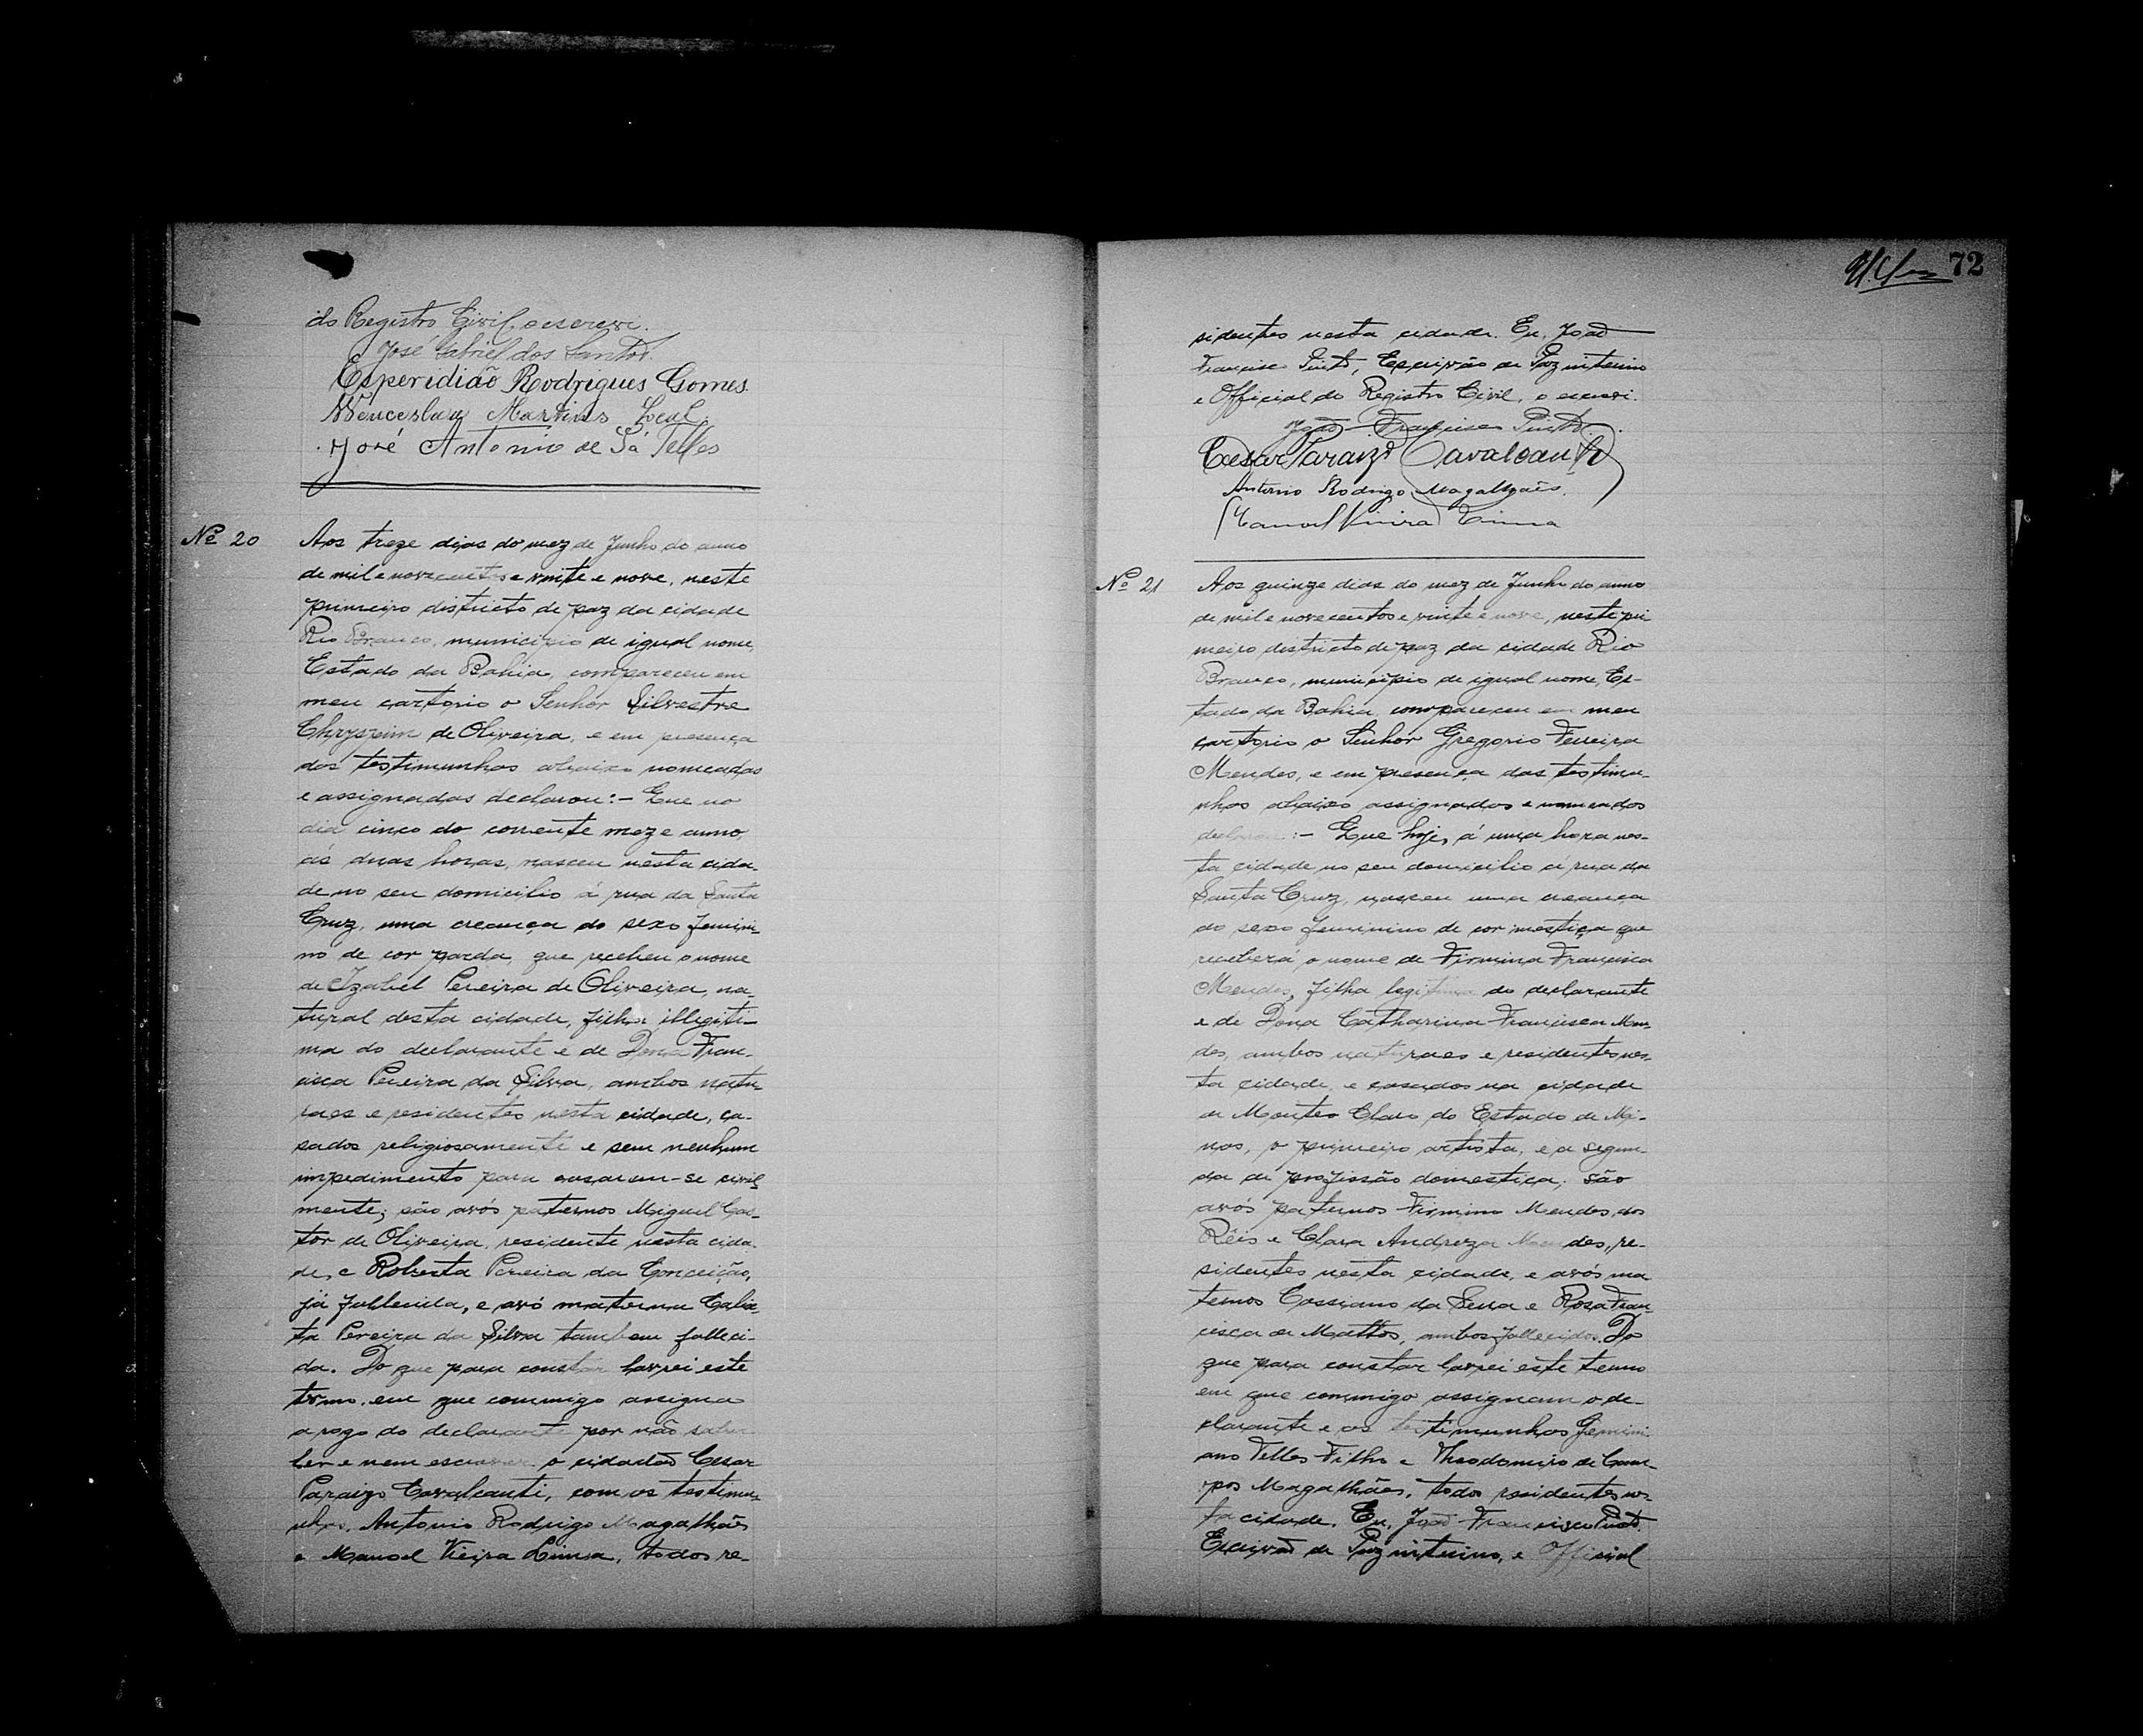 do Registro Civil, o escrevi.
José Gabriel dos Santos.
Esperidião Rodrigues Gomes
Wenceslau Martins Leal.
José Antonio de Sá Telles
Nº 20
Aos treze dias do mez de Junho do anno
de mil e novecentos e vinte e nove, neste
primeiro districto de paz da cidade
Rio Branco, municipio de igual nome,
Estado da Bahia, compareceu em
meu cartorio o Senhor Silvestre
Chryspim de Oliveira, e em presença
das testimunhas abaixo nomeadas
e assignadas declarou:- Que no
dia cinco do corrente mez e anno,
ás duas horas, nasceu nesta cida-
de no seu domicilio á rua da Santa
Cruz, uma creança do sexo femini-
no de cor parda, que recebeu o nome
de Izabel Pereira de Oliveira, na-
tural desta cidade, filha illegiti-
ma do declarante e de Dona Fran-
cisca Pereira da Silva, ambos natu-
raes e residentes nesta cidade, ca-
sados religiosamente e sem nenhum
impedimento para casarem-se civil-
mente; são avós paternos Miguel Cas-
tor de Oliveira, residente nesta cida-
de, e Roberta Pereira da Conceição,
já fallecida, e avó materna
Pereira da Silva tambem falleci-
da. Do que para constar lavrei este
termo, em que commigo assigna
a rogo do declarante por não saber
ler e nem escrever o cidadão Cesar
Paraizo Cavalcanti, com as testimu-
nhas, Antonio Rodrigo Magalhães
e Manoel Vieira Lima, todos re-
72
sidentes nesta cidade. Eu, João
Francisco Pinto, Escrivão de Paz interino
e Official do Registro Civil, o escrevi.
João Francisco Pinto.
Cesar Paraizo Cavalcanti
Antonio Rodrigo Magalhães.
Manoel Vieira Lima
Nº 21
Aos quinze dias do mez de Junho do anno
de mil e novecentos e vinte e nove, neste pri
meiro districto de paz da cidade Rio
Branco, municipio de igual nome, Es-
tado da Bahia, compareceu em meu
cartorio o Senhor Gregorio Ferreira
Mendes, e em presença das testimu-
nhas abaixo assignados e nomeados
declarou:- Que hoje, á uma hora nes-
ta cidade no seu domicilio á rua da
Santa Cruz, nasceu uma creança
do sexo feminino de cor mestiça que
receberá o nome de Firmina Francisca
Mendes, filha legitima do declarante
e de Dona Catharina Francisca Men-
des, ambos naturaes e residentes nes-
ta cidade, e casados na cidade
de Montes Claro do Estado de Mi-
nas, o primeiro artista, e a segun-
da de profissão domestica; são
avós paternos Firmino Mendes dos
Reis e Clara Andreza Mendes, re-
sidentes nesta cidade, e avós ma
ternos Cassiano da Serra e Rosa Fran-
cisca de Mattos, ambos fallecidos. Do
que para constar lavrei este termo
em que commigo assignam o de-
clarante e as testimunhas Gemini-
ano Telles Filho e Theodomiro de Cam-
pos Magalhães, todos residentes nes-
ta cidade. Eu, João Francisco Pinto,
Escrivão de Paz interino, e Official